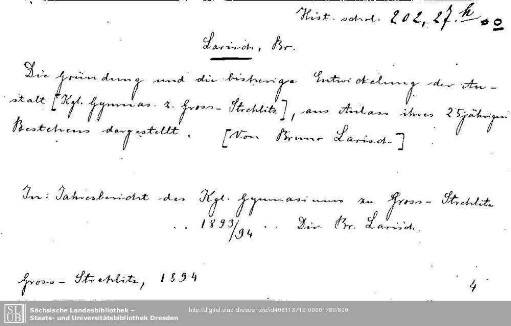 Hist. schol. 202, 27.
Larisch, Br.
Die Gründung und die bisherige Entwickelung der An-
stalt [Kgl. Gymnas. z. Gross-Strehlitz], aus Anlass ihres 25jährigen
Bestehens dargestellt. [Von Bruno Larisch.]
In: Jahresbericht des Kgl. Gymnasiums zu Gross-Strehlitz
.. 1893/94 .. Dir. Br. Larisch.
Gross-Strehlitz, 1894
4
SLUB
Sächsische Landesbibliothek –
Staats- und Universitätsbibliothek Dresden